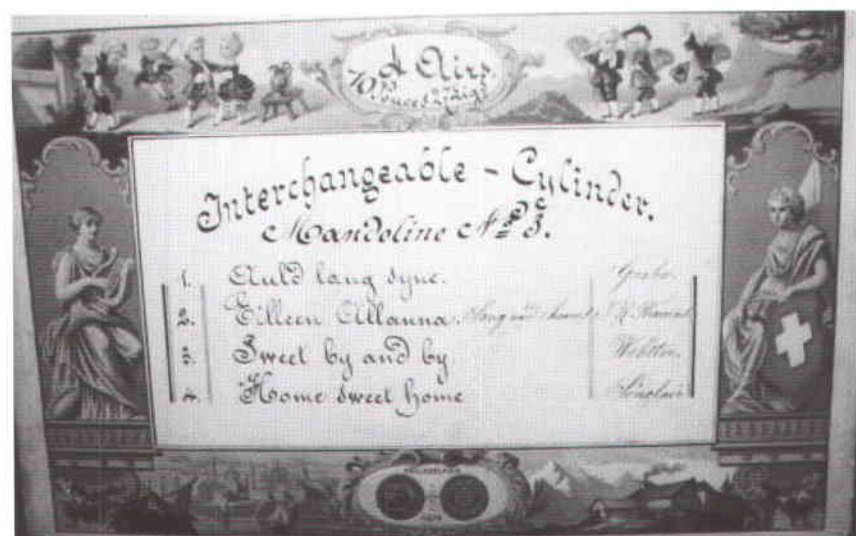 4 Airs.
Interchangeable - Cylinder.
Mandoline No 3.
1. Auld lang syne.
2. Eilleen Allanna. Song and chorus
3. Sweet by and by
4. Home sweet home Sinclair
PHILADELPHIA
1876